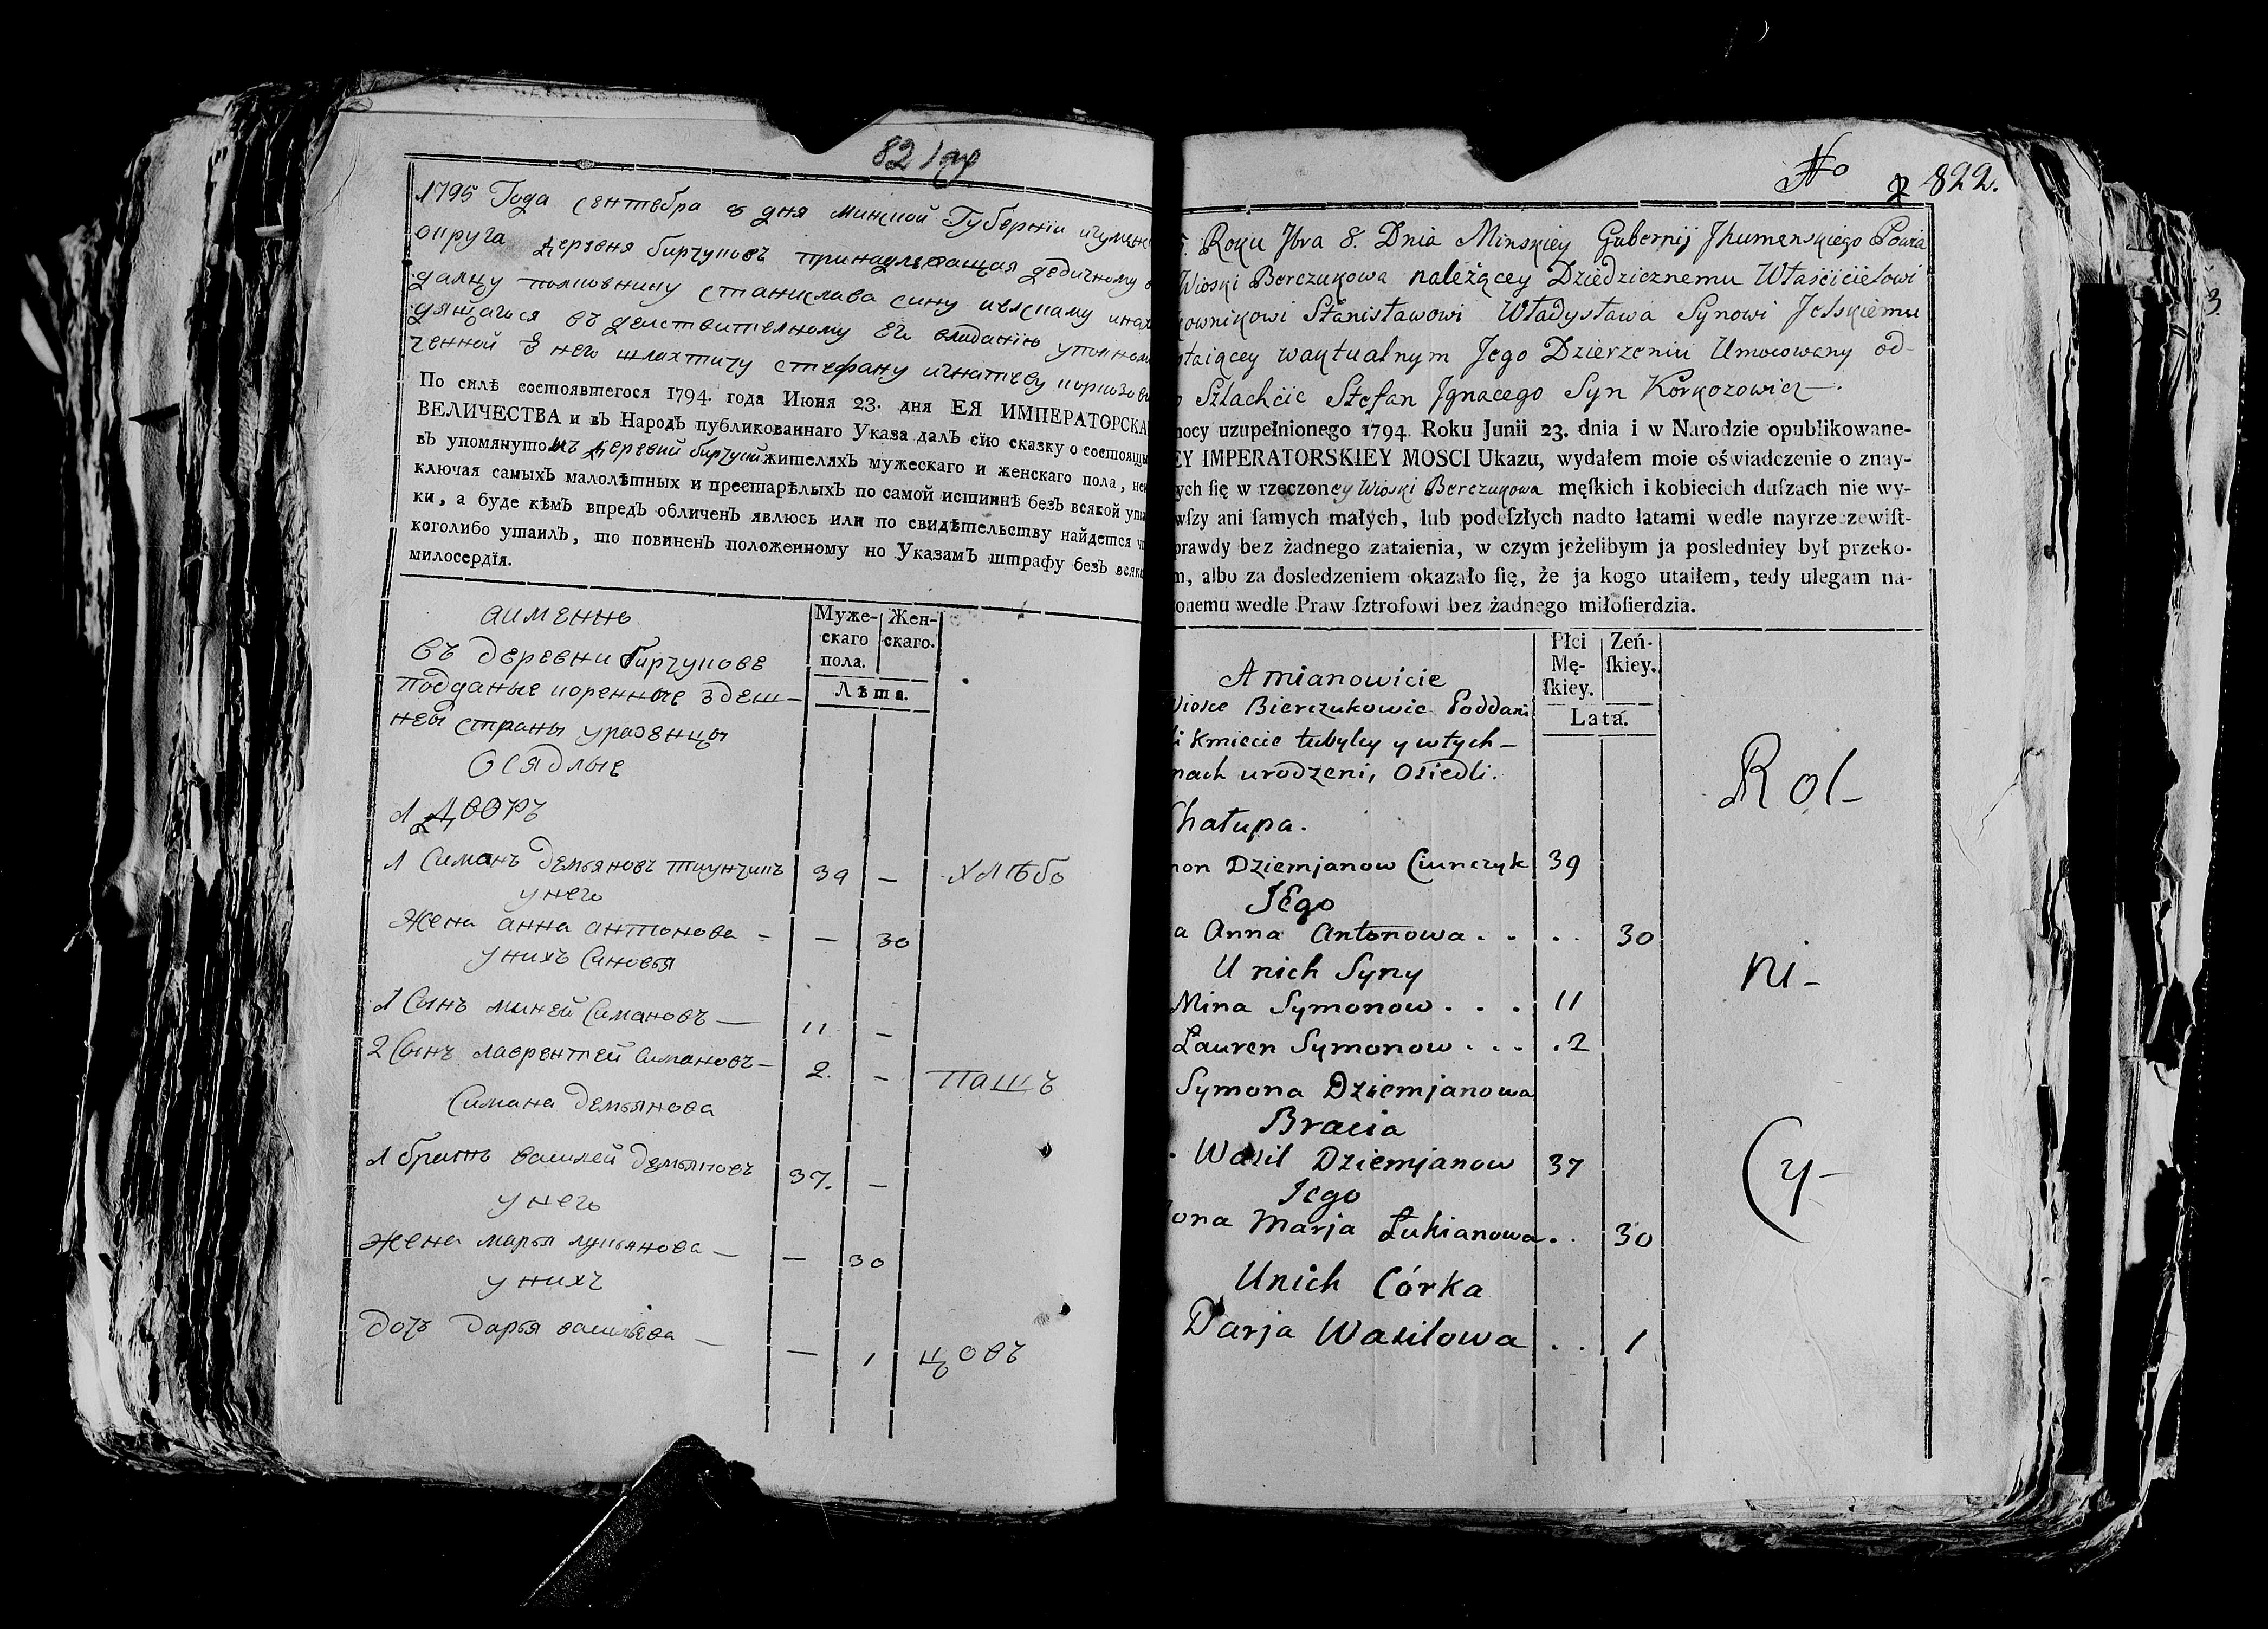 821
1795 Года сентебра 8 дня минской Губерніи игумен
округа деревня бирчуковъ принадлежащая дедичному в
далцу полковнику станислава сину ислскаму инах
дящагося въ делствителному Ег владанію уполном
ченной Ѿ него шляхтичу стефану игнатеву коркозови
По силѣ состоявшегося 1794. года Июня 23. дня ЕЯ ИМПЕРАТОРСКА
ВЕЛИЧЕСТВА и въ Народъ публикованнаго Указа далъ сїю сказку о состоящы
въ упомянутомъ деревни бирчуки жителяхъ мужескаго и женскаго пола, не
ключая самыхъ малолѣтных и престарѣлыхъ по самой истиннѣ безъ всякой ута
ки, а буде кѣмъ впредъ обличенъ явлюсь или по свидѣтельству найдется ч
коголибо утаилъ, то повиненъ положенному по Указамъ штрафу безъ всяк
милосердїя.
аименно
Муже- Жен-
скаго скаго.
пола.
Лѣта.
въ деревни бирчукове
подданые коренные здеш-
ней страны уроженцы
Осядлые
1 Дворъ
1 Симанъ демьяновъ тиунчикъ 39 — хлѣбо
у него
жена анна антонова - — 30
у нихъ Синовья
1 Сынъ миней Симановъ — 11 —
2 Сынъ лаврентей Симановъ — 2. — пашъ
Симана демьянова
1 братъ василей демьяновъ 37. —
у него
жена марья лукьянова — — 30
у нихъ
дочь дарья васильева — — 1 цовъ
No 822.
5. Roku 7bra 8. Dnia Minskiey Gubernij Jhumenskiego Powia
Wioski Berczukowa należącey Dziedzicznemu Właścicielowi
kownikowi Stanisławowi Władysława Synowi Jelskiemu
staiącey waktualnym Jego Dzierżeniu Umocowany od-
o Szlachcic Stefan Jgnacego Syn Korkozowicz—.
mocy uzupełnionego 1794. Roku Junii 23. dnia i w Narodzie opublikowane-
EY IMPERATORSKIEY MOSCI Ukazu, wydałem moie oświadczenie o znay-
ych się w rzeczoney Wioski Berczukowa męſkich i kobiecich duſzach nie wy-
wſzy ani ſamych małych, lub podeſzłych nadto latami wedle nayrzeczewiſt-
prawdy bez żadnego zataienia, w czym jeżelibym ja posledniey był przeko-
m, albo za dosledzeniem okazało ſię, że ja kogo utaiłem, tedy ulegam na-
onemu wedle Praw ſztrofowi bez żadnego miłoſierdzia.
Amianowicie
Płci Zeń-
Mę- ſkiey.
ſkiey.
Lata.
Wiosce Bierczukowie Poddani
i Kmiecie tubylcy y wtych-
nach urodzeni, Osiedli.
Rol-
Chałupa.
mon Dziemjanow Ciunczyk 39
Jego
a Anna Antonowa . . . . 30
U nich Syny
ni-
Mina Symonow . . . 11
Lauren Symonow . . . . 2
Symona Dziemjanowa
Bracia
. Wasil Dziemjanow 37
Cy-
Jego
ona Marja Łukianowa . . 30
Unich Córka
Darja Wasilowa . . 1